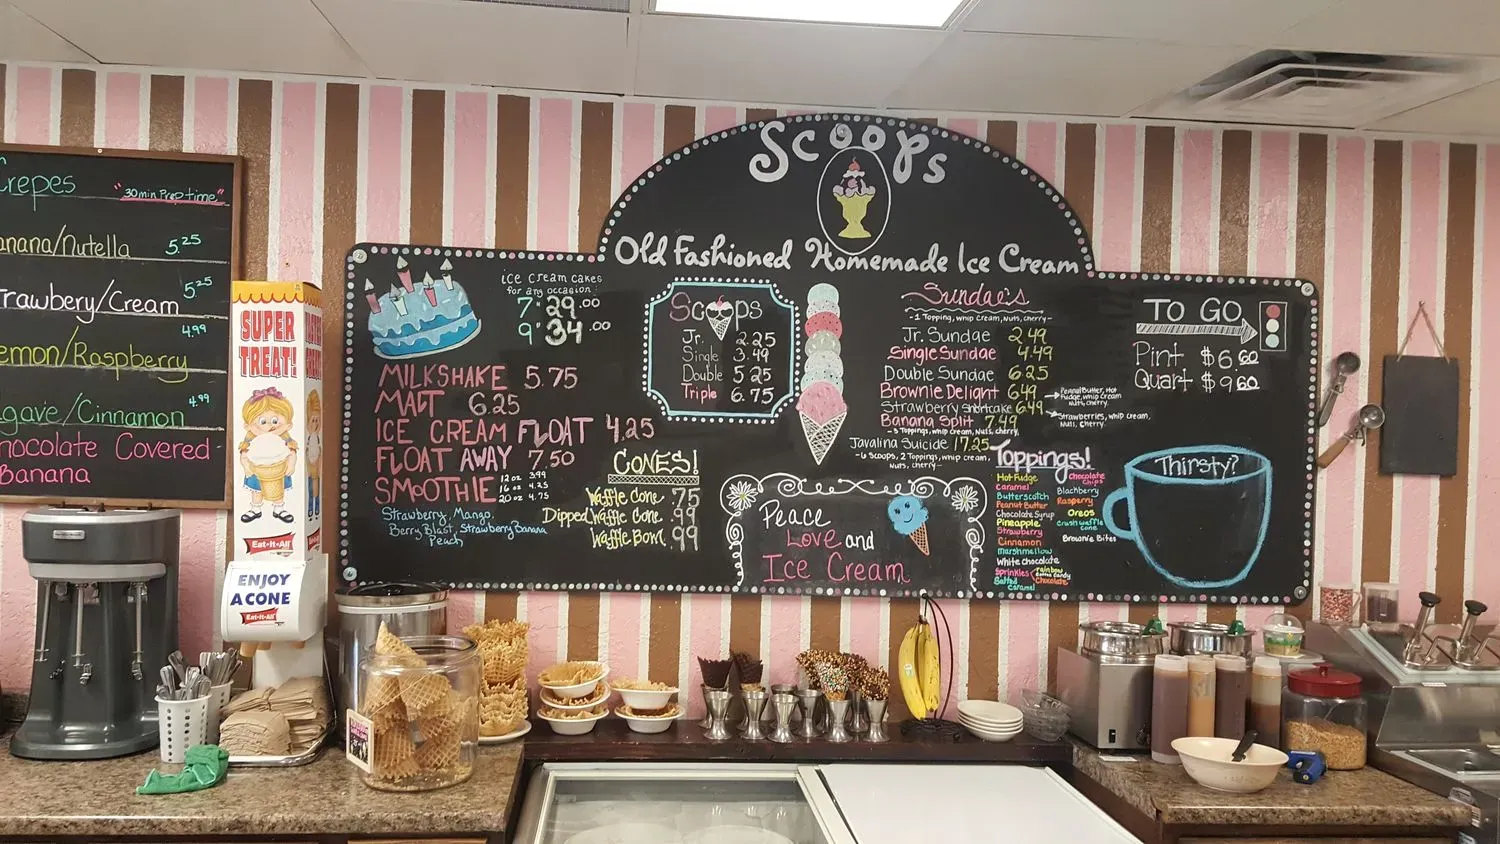 Crepes "30 min Prep time"
Banana/Nutella 5.25
Strawbery/Cream 5.25
Lemon/Raspberry 4.99
Agave/Cinnamon 4.99
Chocolate Covered
Banana
SUPER
TREAT!
Eat-It-All
ENJOY
A CONE
Eat-It-All
Scoops
Old Fashioned Homemade Ice Cream
ice cream cakes
for any occasion
7" 29.00
9" 34.00
MILKSHAKE 5.75
MALT 6.25
ICE CREAM FLOAT 4.25
FLOAT AWAY 7.50
SMOOTHIE 12 oz 3.99
16 oz 4.25
20 oz 4.75
Strawberry, Mango,
Berry Blast, Strawberry Banana
Peach
CONES!
Waffle Cone .75
Dipped Waffle Cone .99
Waffle Bowl .99
Scoops
Jr. 2.25
Single 3.49
Double 5.25
Triple 6.75
Peace
Love and
Ice Cream
Sundae's
- 1 Topping, whip cream, Nuts, cherry -
Jr. Sundae 2.49
Single Sundae 4.49
Double Sundae 6.25
Brownie Delight 6.49 Peanut Butter, Hot
Fudge, whip cream
Nuts, cherry.
Strawberry Shortcake 6.49 Strawberries, whip cream,
Nuts, Cherry.
Banana Split 7.49
- 3 Toppings, whip cream, Nuts, cherry.
Javalina Suicide 17.25
- 6 Scoops, 2 Toppings, whip cream,
Nuts, cherry -
Toppings!
Hot Fudge
Caramel
Butterscotch
Peanut Butter
Chocolate Syrup
Pineapple
Strawberry
Cinnamon
Marshmellow
White Chocolate
Sprinkles rainbow
cotton candy
Chocolate
Salted
Caramel
Chocolate
Chips
Blackberry
Rasperry
Oreos
Crush waffle
cone
Brownie Bites
TO GO
Pint $6.60
Quart $9.60
Thirsty?